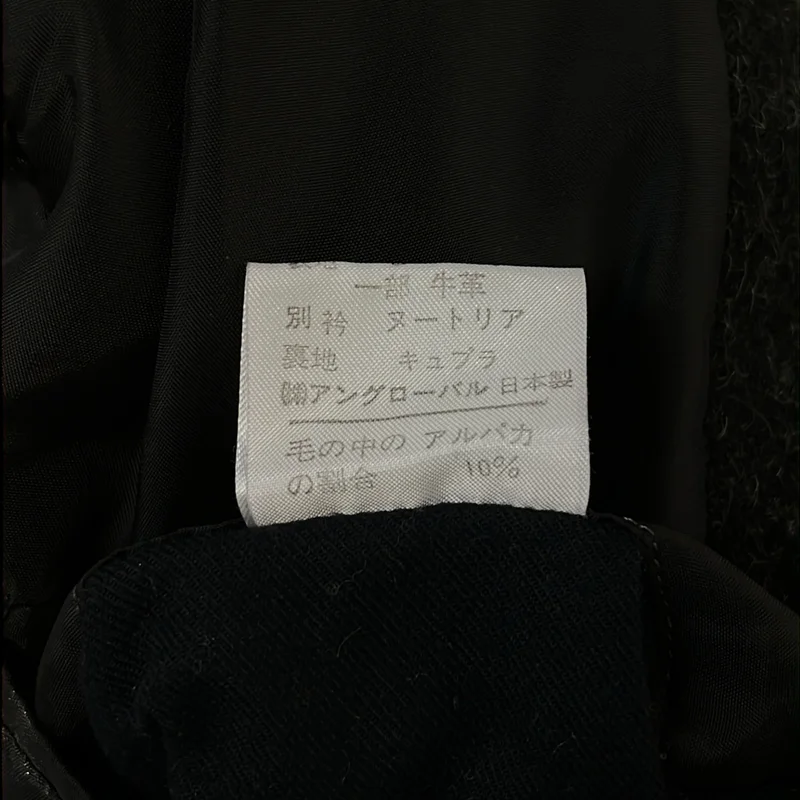 一部 牛革
別衿 ヌートリア
裏地 キュプラ
㈱アングローバル 日本製
毛の中の アルパカ
の割合 10%